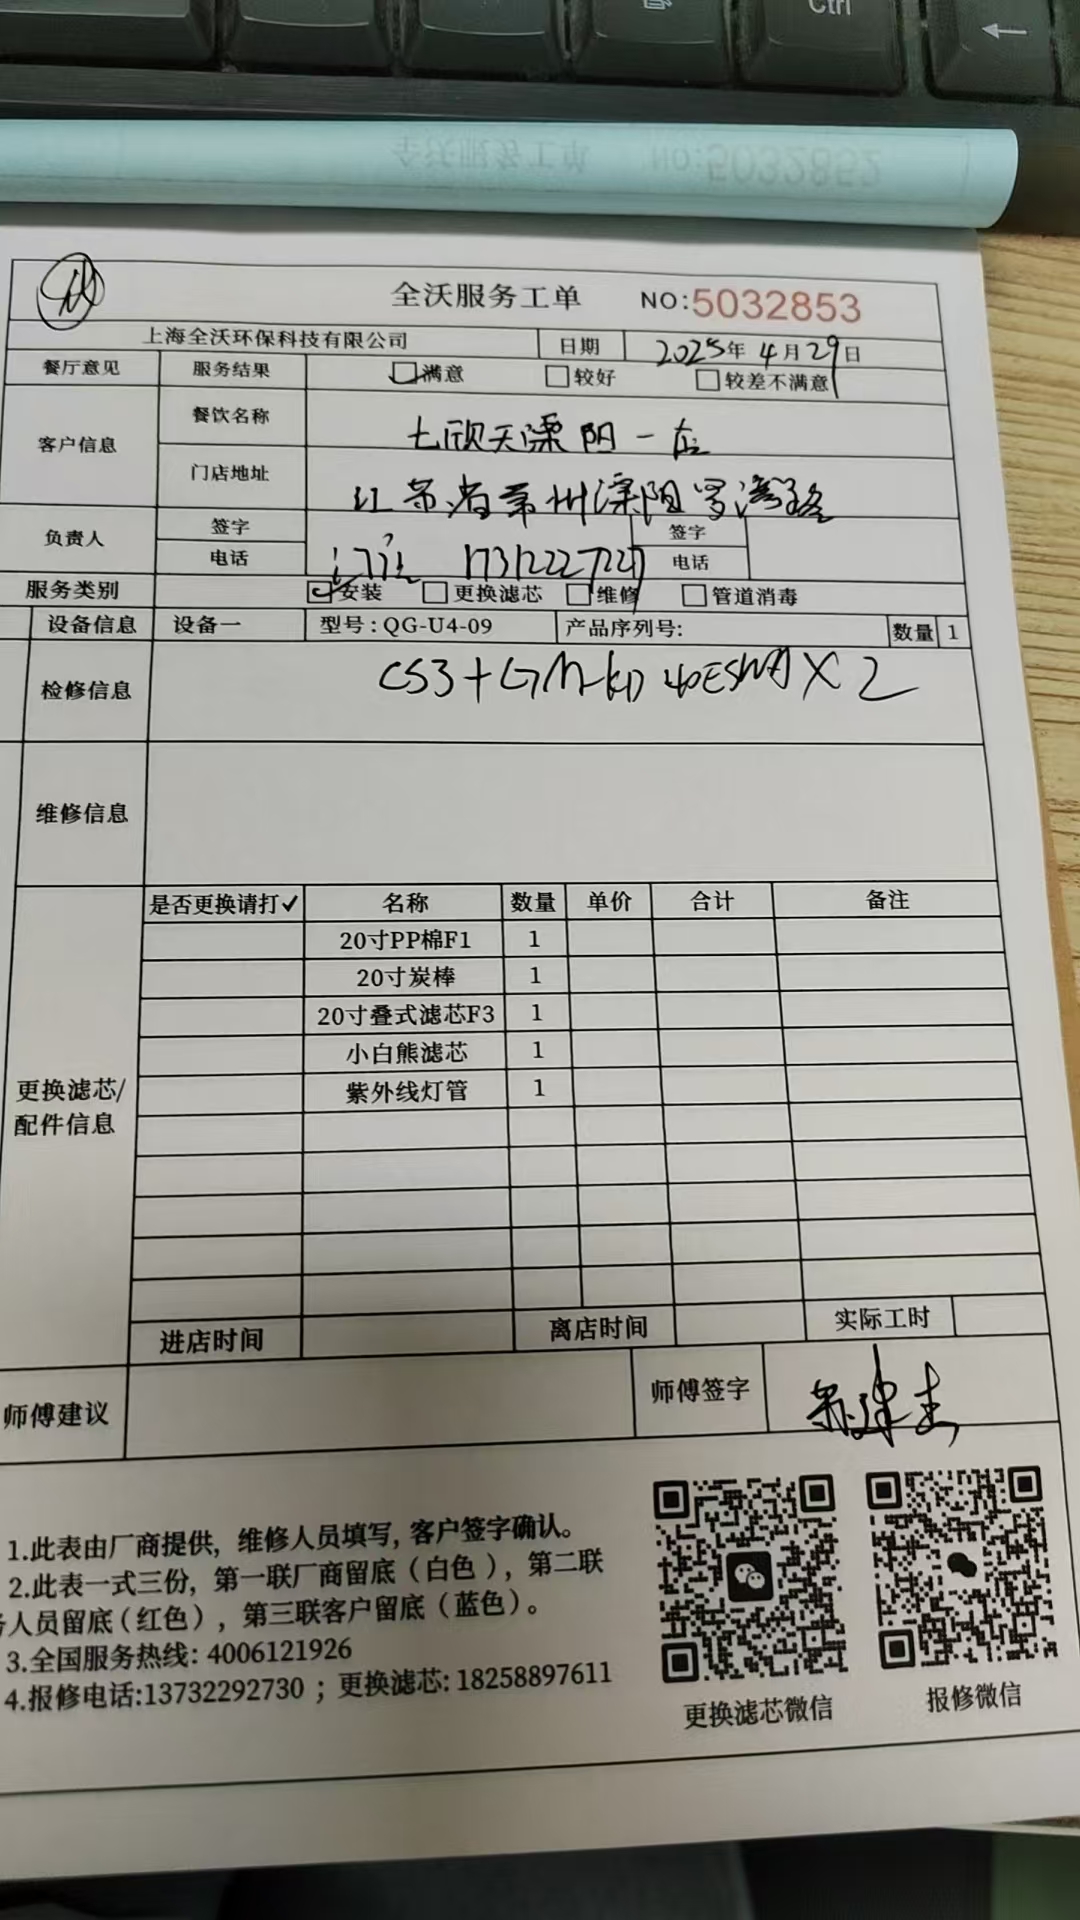 Ctrl
全沃服务工单 NO:5032852
全沃服务工单 NO:5032853
上海全沃环保科技有限公司 日期 2025年4月29日
餐厅意见 服务结果 满意 较好 较差不满意
客户信息 餐饮名称 七欣天溧阳一店
门店地址 江苏省常州溧阳罗湾路
负责人 签字 签字
电话 电话
服务类别 安装 更换滤芯 维修 管道消毒
设备信息 设备一 型号:QG-U4-09 产品序列号: 数量 1
检修信息 CS3+GM-KD 40ESWA×2
维修信息
是否更换请打✓ 名称 数量 单价 合计 备注
20寸PP棉F1 1
20寸炭棒 1
20寸叠式滤芯F3 1
小白熊滤芯 1
紫外线灯管 1
更换滤芯/
配件信息
进店时间 离店时间 实际工时
师傅建议 师傅签字
1.此表由厂商提供, 维修人员填写, 客户签字确认。
2.此表一式三份, 第一联厂商留底(白色), 第二联
务人员留底(红色), 第三联客户留底(蓝色)。
3.全国服务热线: 4006121926
4.报修电话:13732292730 ; 更换滤芯: 18258897611
更换滤芯微信 报修微信